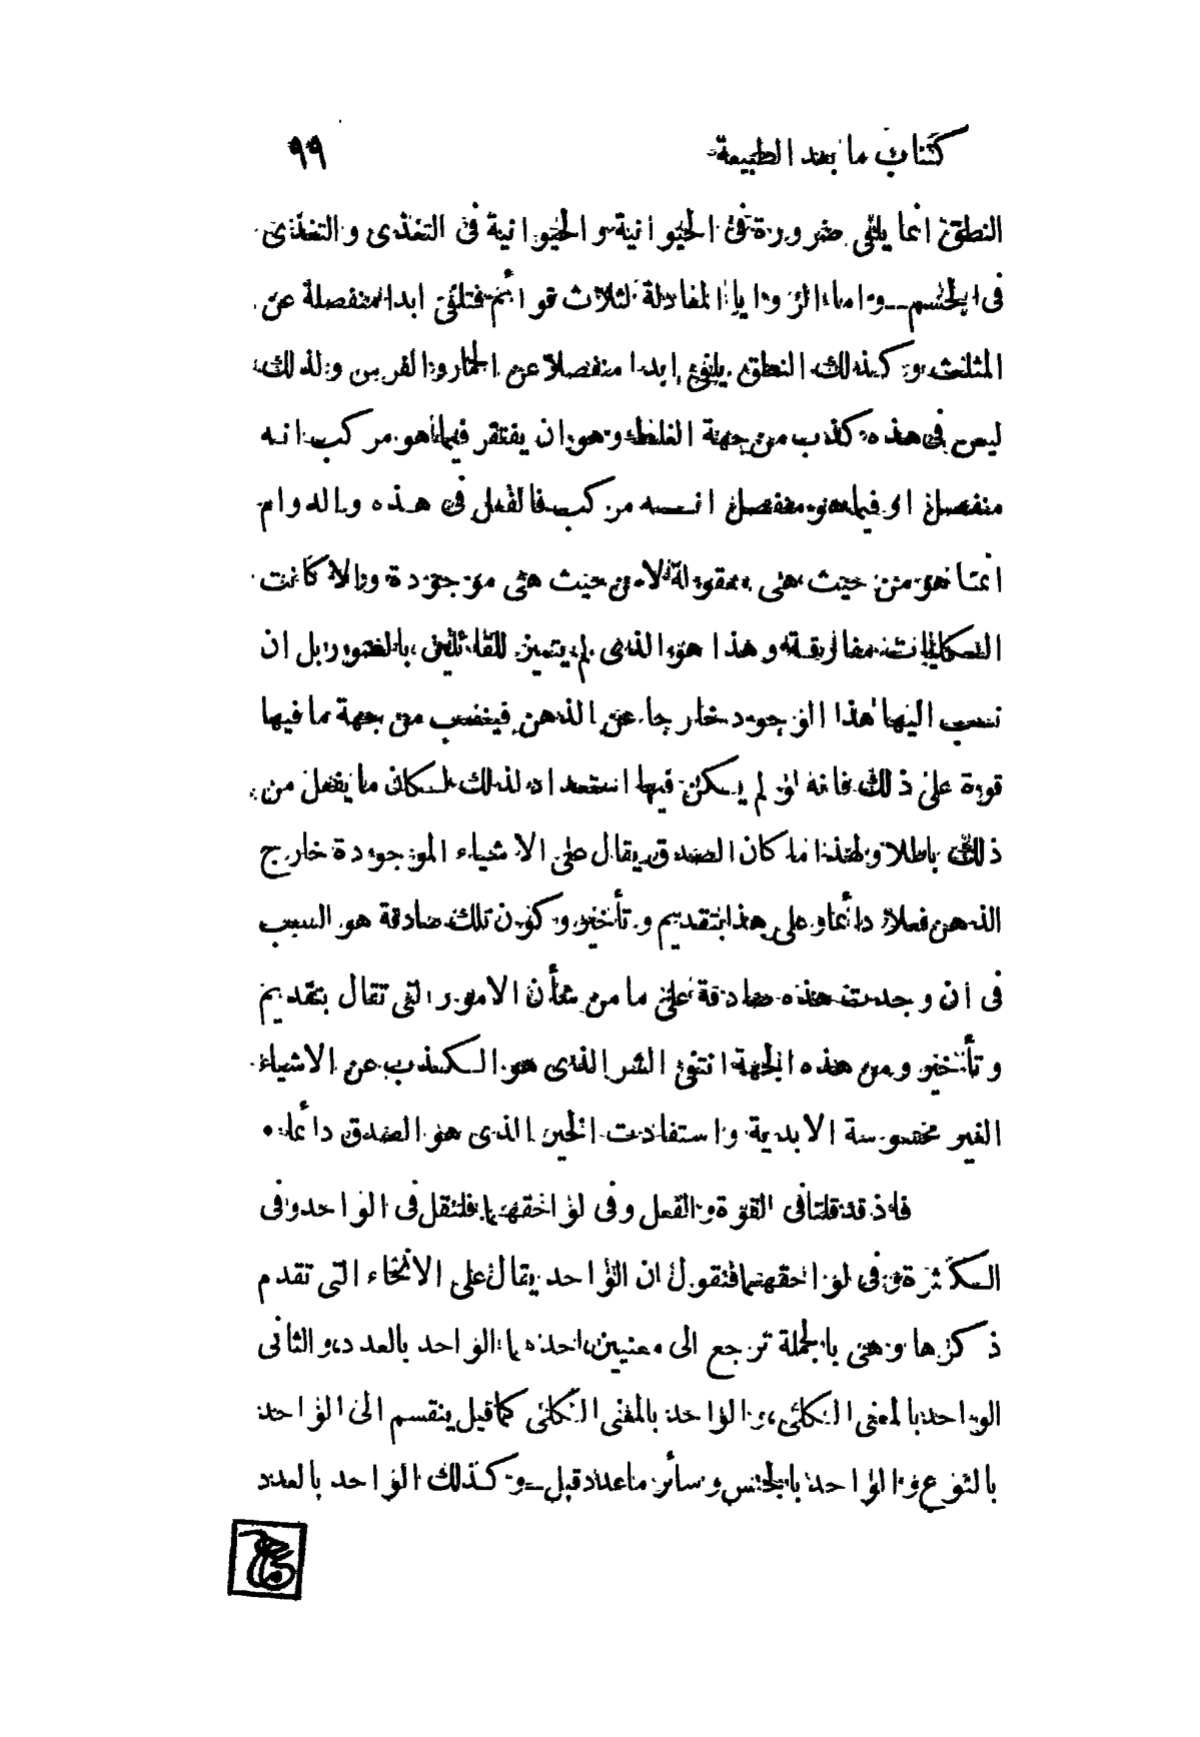 كتاب ما بعد الطبيعة ٩٩
النطق انما يلفى ضرورة فى الحيوانية والحيوانية فى التغذى والتغذى
فى الجسم ــ واما الزوايا المعادلة لثلاث قوائم فتلفى ابدا منفصلة عن
المثلث وكذلك النطق يلفى ابدا منفصلا عن الحمار والفرس ولذلك
ليس فى هذه كذب من جهة الغلط وهو ان يفتقر فيما هو مركب انه
منفصل او فيما هو منفصل انه مركب فالفعل فى هذه والدوام
انما هو من حيث هى معقولة لا من حيث هى موجودة والا كانت
الكليات مفارقة وهذا هو الذى لم يتميز للقائلين بالصور بل ان
نسب اليها هذا الوجود خارجا عن الذهن فينسب من جهة ما فيها
قوة على ذلك فانه لو لم يكن فيها استعداد لذلك لكان ما يفعل من
ذلك باطلا ولهذا ما كان الصدق يقال على الاشياء الموجودة خارج
الذهن فعلا دائما وعلى هذا بتقديم وتأخير وكون تلك صادقة هو السبب
فى ان وجدت هذه صادقة على ما من شأن الامور التى تقال بتقديم
وتأخير ومن هذه الجهة انتفى الشر الذى هو الكذب عن الاشياء
الغير محسوسة الابدية واستفادت الخير الذى هو الصدق دائما •
فاذ قد قلنا فى القوة والفعل وفى لواحقهما فلنقل فى الواحد وفى
الكثرة وفى لواحقهما فنقول ان الواحد يقال على الانحاء التى تقدم
ذكرها وهى بالجملة ترجع الى معنيين احدهما الواحد بالعدد، والثانى
الواحد بالمعنى الكلى، والواحد بالمعنى الكلى كما قيل ينقسم الى الواحد
بالنوع والواحد بالجنس وسائر ما عدد قبل ــ وكذلك الواحد بالعدد